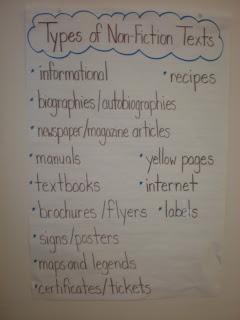 Types of Non-Fiction Texts
• informational • recipes
• biographies/autobiographies
• newspaper/magazine articles
• manuals • yellow pages
• textbooks • internet
• brochures/flyers • labels
• signs/posters
• maps and legends
• certificates/tickets